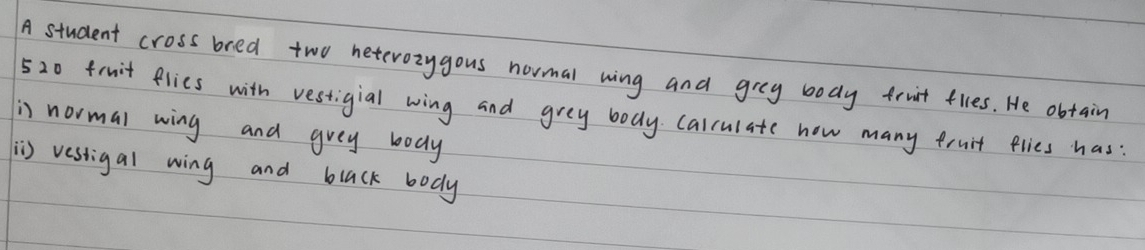 A student cross bred two heterozygous normal wing and grey body fruit flies. He obtain
520 fruit flies with vestigial wing and grey body. Calculate how many fruit flies has:
i) normal wing and grey body
ii) vestigal wing and black body